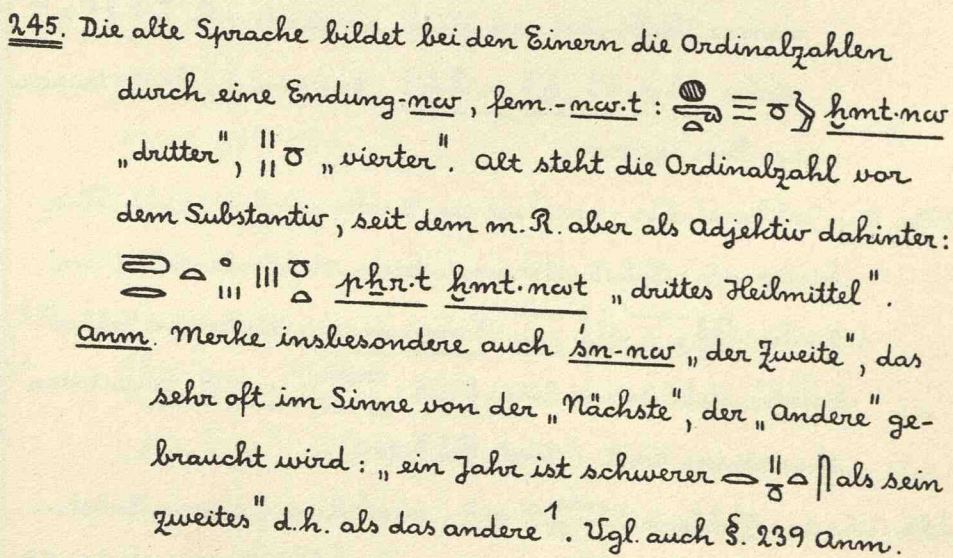 245. Die alte Sprache bildet bei den Einern die Ordinalzahlen
durch eine Endung -nw, fem. -nw.t : ḫmt·nw
„dritter", „vierter". Alt steht die Ordinalzahl vor
dem Substantiv, seit dem m. R. aber als Adjektiv dahinter:
pẖr·t ḫmt·nwt „drittes Heilmittel".
Anm. Merke insbesondere auch śn-nw „der Zweite", das
sehr oft im Sinne von der „Nächste", der „Andere" ge-
braucht wird: „ein Jahr ist schwerer als sein
zweites" d.h. als das andere ¹. Vgl. auch §. 239 Anm.